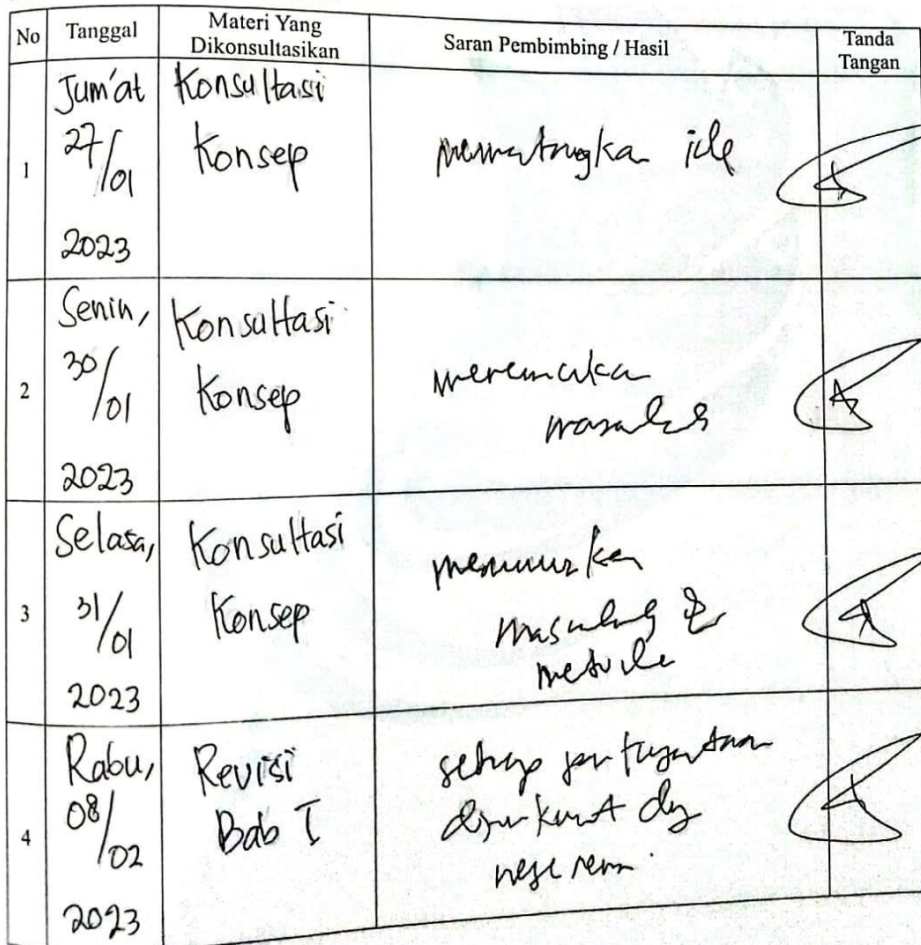 No Tanggal Materi Yang Dikonsultasikan Saran Pembimbing / Hasil Tanda Tangan
1
Jum'at
27/01
2023
Konsultasi
Konsep
mematangka ide
2
Senin,
30/01
2023
Konsultasi
Konsep
masalah
3
Selasa,
31/01
2023
Konsultasi
Konsep
masalah &
metode
4
Rabu,
08/02
2023
Revisi
Bab I
setiap
diperkuat dg